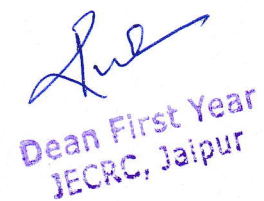 Dean First Year
JECRC, Jaipur